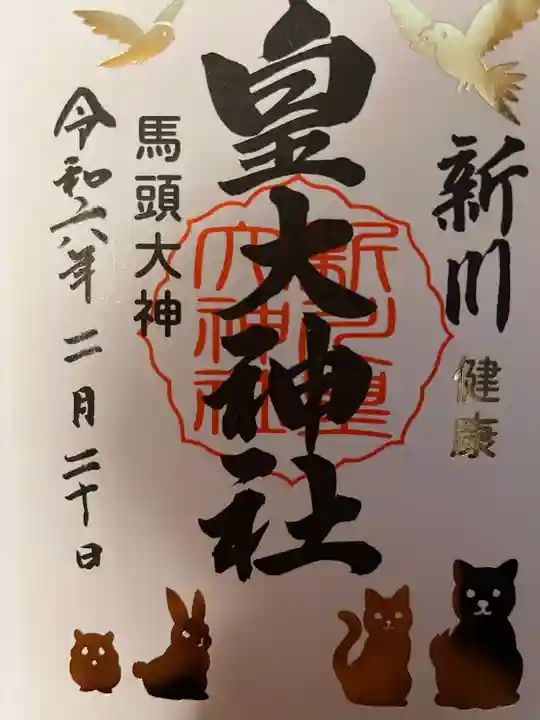 新川
健康
皇大神社
新川皇
大神社
馬頭大神
令和六年二月二十日